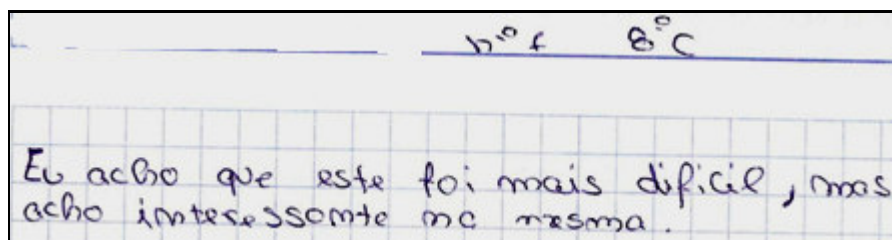 nº 8ºC
Eu acho que este foi mais dificil, mas
acho interessante na mesma.